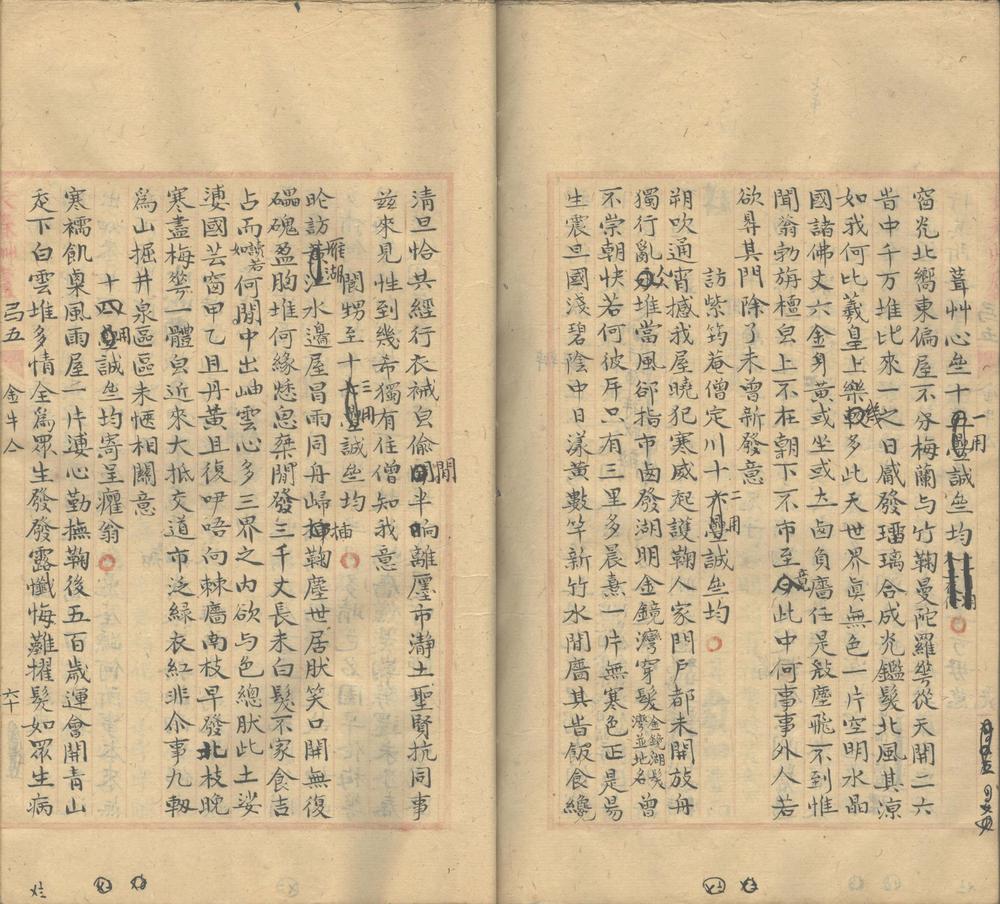 葺艸心㘴十一用誠㘴均
窗光北嚮東偏屋不分梅蘭与竹鞠曼陀羅華從天開二六
旹中千万堆比來一之日觱發瑠璃合成光鑑髮北風其涼
如我何比羲皇上樂幾多此天世界眞無色一片空明水晶
國諸佛丈六金身黃或坐或立鹵負廧任是殺塵飛不到惟
聞翁勃旃檀皀上不在朝下不市至竟此中何事事外人若
欲昇其門除了未曾新發意
訪紫筠菴僧定川十二用誠㘴均
朔吹通宵撼我屋曉犯寒威起護鞠人家門戶都未開放舟
獨行亂㕕堆當風卻指市鹵發湖明金鏡灣穿髮金鏡湖髮灣並地名曾
不崇朝快若何彼㡿只有三里多晨熹一片無寒色正是昜
生震旦國淺碧陰中日漾黃數竿新竹水閒廧其旹飯食纔
清旦恰共經行衣裓皀偷閒半晌離廛市瀞土聖賢抗同事
茲來見性到幾希獨有住僧知我意
閬甥至十三用誠㘴均
昤訪雁湖水邊屋冒雨同舟歸插鞠塵世居肰笑口開無復
礧磈盈胸堆何緣愻息棻閒發三千丈長未白髮不家食吉
占而如訢若何閒中出岫雲心多三界之内欲与色總肰此土娑
婆國芸窗甲乙且丹黃且復咿唔向棘廧南枝早發北枝晚
寒盡梅華一體皀近來大抵交道市泛緑衣紅非尒事九軔
爲山掘井泉區區未愜相關意
十四用誠㘴均寄呈癯翁
寒襦飢稟風雨屋一片婆心勤撫鞠後五百歲運會開青山
叐下白雲堆多情全爲眾生發發露懺悔難擢髮如眾生病
弓五
金牛仐
六十